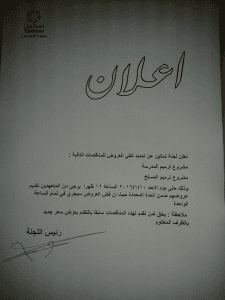 اعلان
تعلن لجنة تمكين عن تمديد تلقي العروض للمناقصات التالية :
مشروع ترميم المدرسة
مشروع ترميم المسلخ
وذلك حتى يوم الاحد ٢٠١٦/٦/١٠ الساعة ١٢ ظهرا يرجى من المتعهدين تقديم
عروضهم ضمن المدة المحددة حيث ان فض العروض سيجري في تمام الساعة
الواحدة
ملاحظة : يحق لمن تقدم لهذه المناقصات سابقا بالتقدم بعرض سعر جديد
بالظرف المختوم
رئيس اللجنة